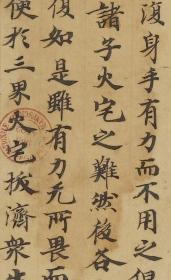 復身手有力而不用之但
諸子火宅之難然後各
復如是雖有力无所畏而
便於三界火宅拔濟衆生